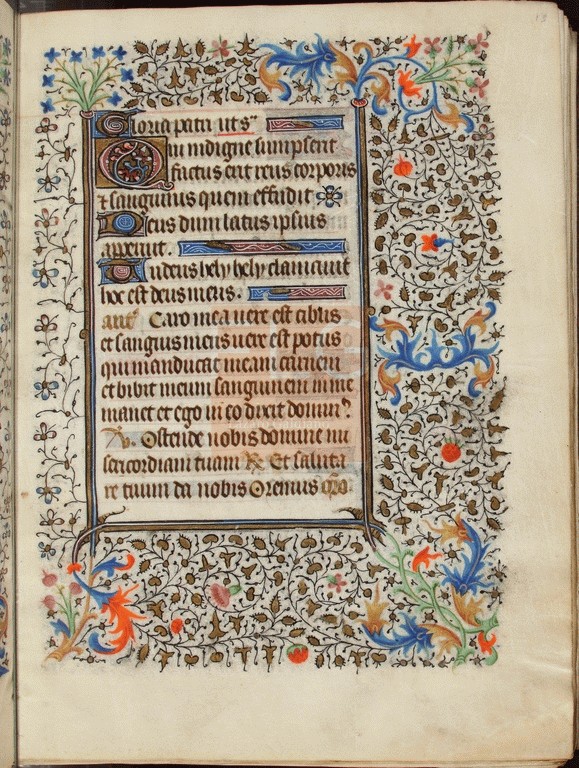 Gloria patri ut sᵃ
Qui indigne sumpserit
factus erit reus corporis
⁊ sanguinis quem effudit
Deus dum latus ipsius
apperuit.
Iudeus hely hely clamavit
hoc est deus meus.
anᵗ Caro mea vere est cibus
et sanguis meus vere est potus
qui manducat meam carnem
et bibit meum sanguinem in me
manet et ego in eo dicit dominꝰ.
℣. Ostende nobis domine mi
sericordiam tuam ℟. Et saluta
re tuum da nobis Oremus
13